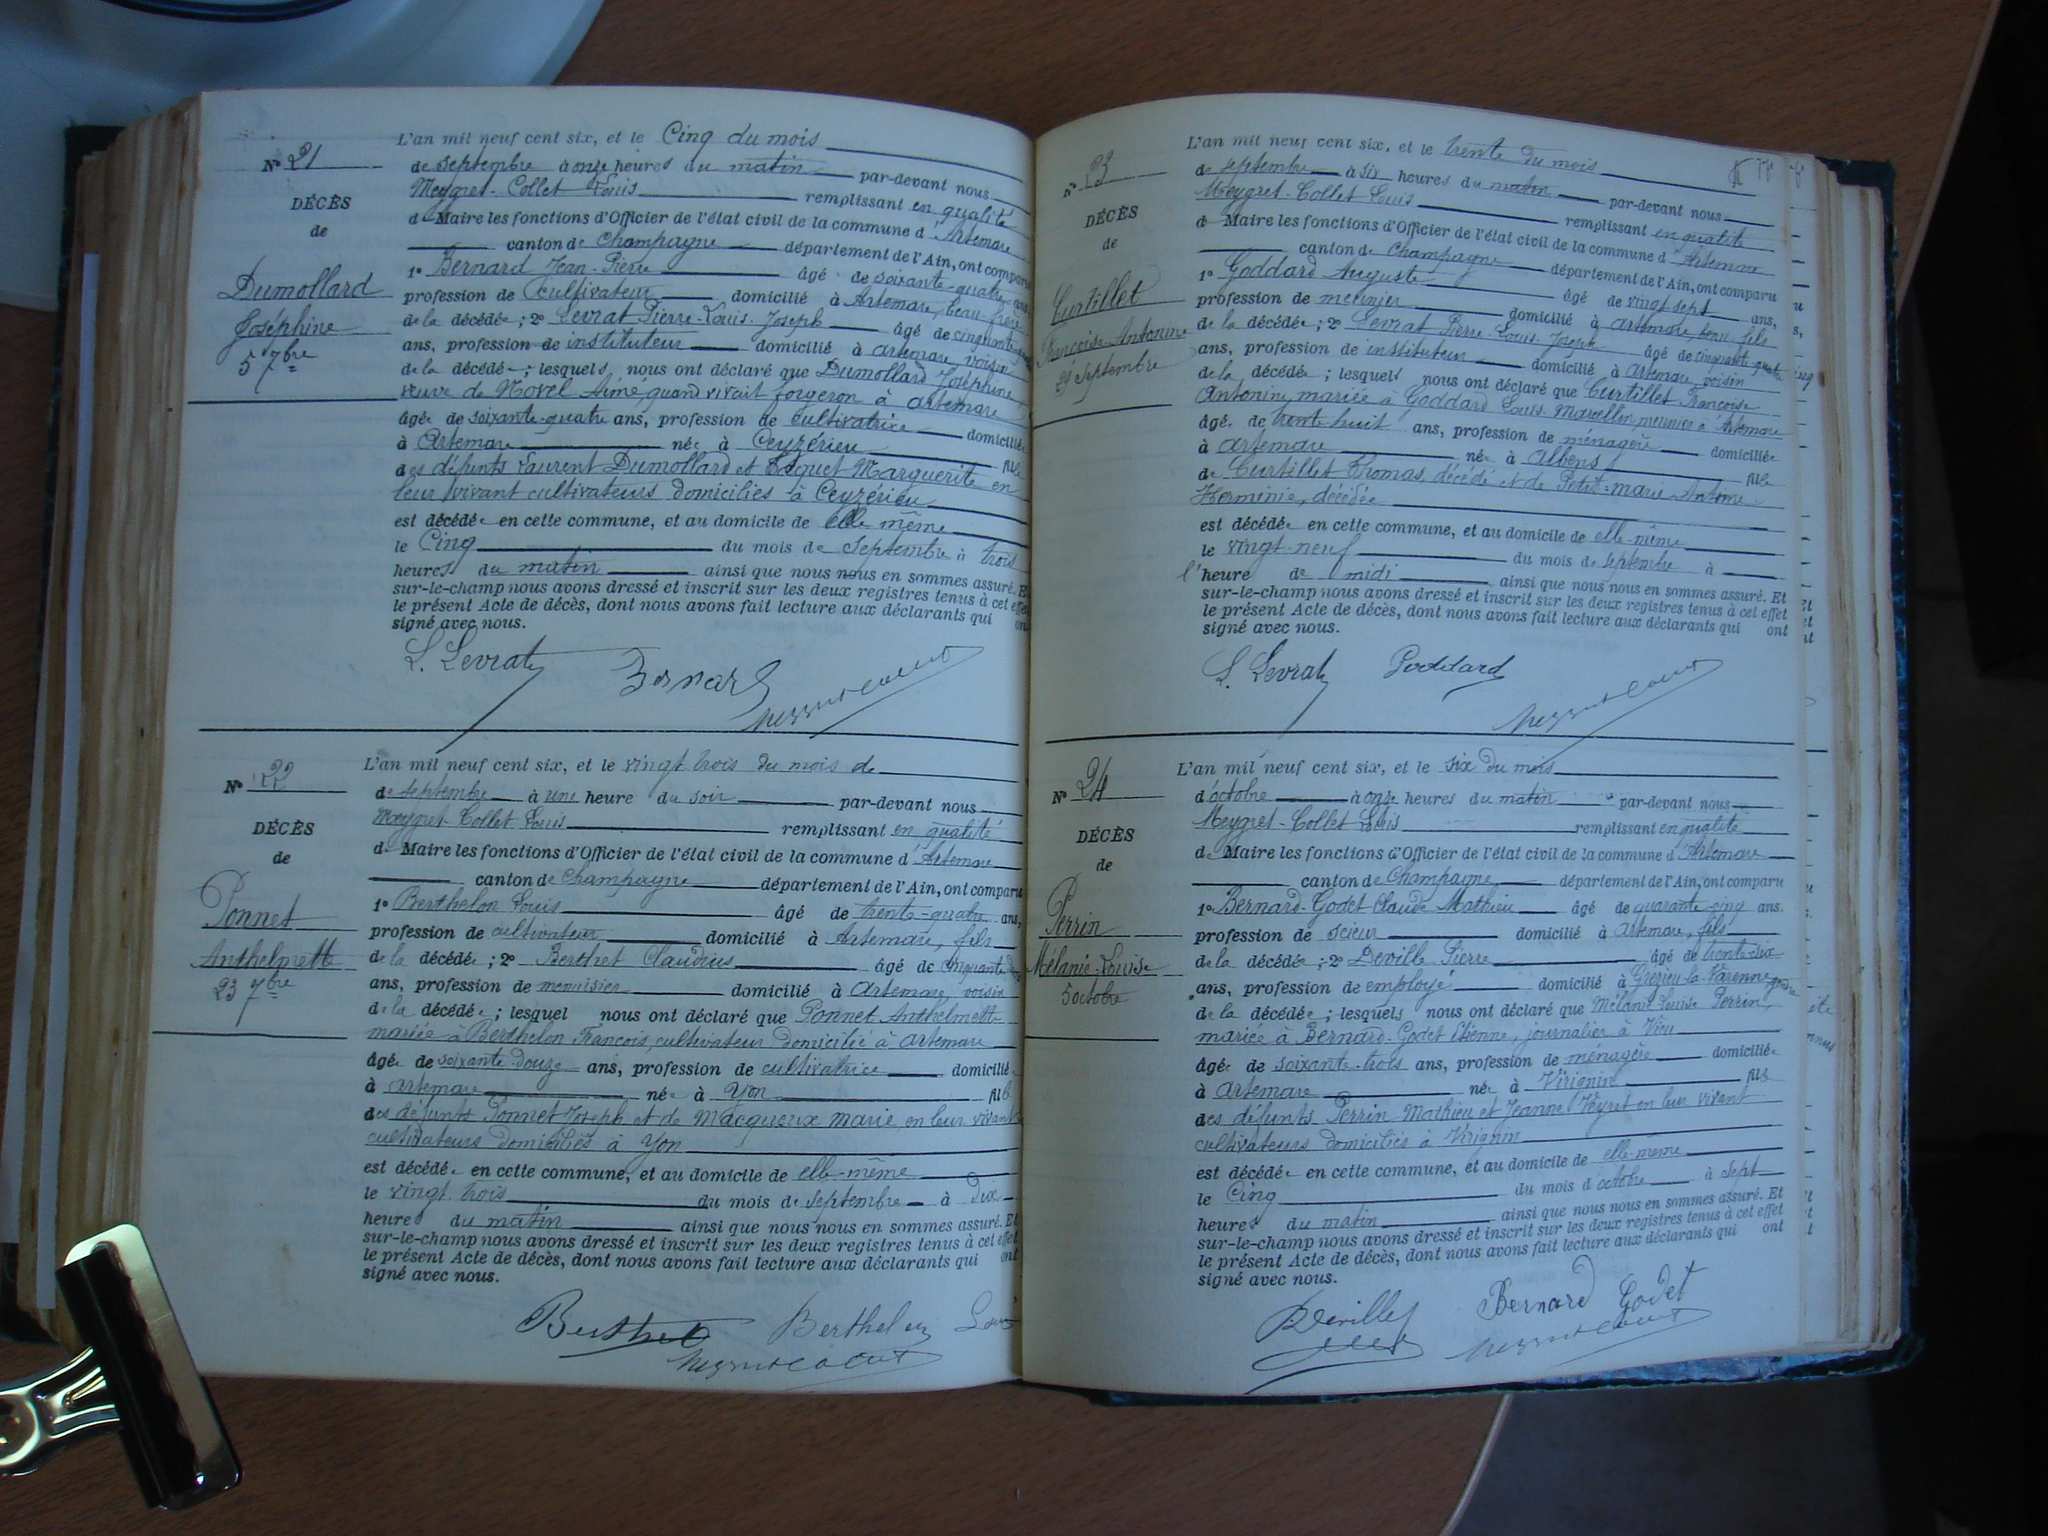 N° 21
DÉCÈS
de
Dumollard
Joséphine
5 7bre
L'an mil neuf cent six, et le Cinq du mois
de septembre à onze heures du matin par-devant nous
Meygret-Collet Louis remplissant en qualité
de Maire les fonctions d'Officier de l'état civil de la commune d'Artemare
canton de Champagne département de l'Ain, ont comparu
1° Bernard Jean-Pierre âgé de soixante-quatre ans
profession de cultivateur domicilié à Artemare, beau-frère
de la décédée ; 2° Levrat Pierre-Louis-Joseph âgé de cinquante
ans, profession de instituteur domicilié à Artemare, voisin
de la décédée ; lesquels nous ont déclaré que Dumollard Joséphine
veuve de Novel Aimé, quand vivait forgeron à Artemare
âgée de soixante-quatre ans, profession de cultivatrice domiciliée
à Artemare née à Ceyzérieu fille
des défunts Laurent Dumollard et Marguerite en
leur vivant cultivateurs domiciliés à Ceyzérieu
est décédée en cette commune, et au domicile de elle même
le Cinq du mois de septembre à trois
heures du matin ainsi que nous nous en sommes assuré. Et
sur-le-champ nous avons dressé et inscrit sur les deux registres tenus à cet effet
le présent Acte de décès, dont nous avons fait lecture aux déclarants qui ont
signé avec nous.
L. Levrat Bernard
N° 22
DÉCÈS
de
Ponnet
Anthelmette
23 7bre
L'an mil neuf cent six, et le vingt trois du mois de
de septembre à une heure du soir par-devant nous
Meygret-Collet Louis remplissant en qualité
de Maire les fonctions d'Officier de l'état civil de la commune d'Artemare
canton de Champagne département de l'Ain, ont comparu
1° Berthelon Louis âgé de trente-quatre ans,
profession de cultivateur domicilié à Artemare, fils
de la décédée ; 2° Berthet Claudius âgé de cinquante
ans, profession de menuisier domicilié à Artemare, voisin
de la décédée ; lesquel nous ont déclaré que Ponnet Anthelmette
mariée à Berthelon François, cultivateur domicilié à Artemare
âgée de soixante-douze ans, profession de cultivatrice domiciliée
à Artemare née à Yon fille
des défunts Ponnet Joseph et de Macqueux Marie en leur vivant
cultivateurs domiciliés à Yon
est décédée en cette commune, et au domicile de elle-même
le vingt trois du mois de septembre à Dix
heures du matin ainsi que nous nous en sommes assuré. Et
sur-le-champ nous avons dressé et inscrit sur les deux registres tenus à cet effet
le présent Acte de décès, dont nous avons fait lecture aux déclarants qui ont
signé avec nous.
Berthet Berthelon Louis
N° 23
DÉCÈS
de
Curtillet
Françoise Antonine
29 Septembre
L'an mil neuf cent six, et le trente du mois
de septembre à six heures du matin par-devant nous
Meygret-Collet Louis remplissant en qualité
de Maire les fonctions d'Officier de l'état civil de la commune d'Artemare
canton de Champagne département de l'Ain, ont comparu
1° Goddard Auguste âgé de vingt sept ans,
profession de meunier domicilié à Artemare, beau-fils
de la décédée ; 2° Levrat Pierre Louis Joseph âgé de cinquante quatre
ans, profession de instituteur domicilié à Artemare, voisin
de la décédée ; lesquels nous ont déclaré que Curtillet Françoise
Antonine, mariée à Goddard Louis-Marcellin, meunier à Artemare
âgée de trente huit ans, profession de ménagère domiciliée
à Artemare née à Albens fille
de Curtillet Thomas, décédé et de Petit-Marie Antoine
Herminie, décédée
est décédée en cette commune, et au domicile de elle-même
le vingt-neuf du mois de septembre à
l'heure de midi ainsi que nous nous en sommes assuré. Et
sur-le-champ nous avons dressé et inscrit sur les deux registres tenus à cet effet
le présent Acte de décès, dont nous avons fait lecture aux déclarants qui ont
signé avec nous.
L. Levrat Goddard
N° 24
DÉCÈS
de
Perrin
Mélanie-Louise
5 octobre
L'an mil neuf cent six, et le six du mois
d'octobre à onze heures du matin par-devant nous
Meygret-Collet Louis remplissant en qualité
de Maire les fonctions d'Officier de l'état civil de la commune d'Artemare
canton de Champagne département de l'Ain, ont comparu
1° Bernard-Godet Claude Mathieu âgé de quarante-cinq ans.
profession de scieur domicilié à Artemare, fils
de la décédée ; 2° Deville Pierre âgé de trente-six
ans, profession de employé domicilié à Grézieu-la-Varenne, gendre
de la décédée ; lesquels nous ont déclaré que Mélanie Louise Perrin,
mariée à Bernard-Godet Etienne, journalier à Vieu
âgée de soixante-trois ans, profession de ménagère domiciliée
à Artemare née à Virignin fille
des défunts Perrin Mathieu et Jeanne Veyret en leur vivant
cultivateurs domiciliés à Virignin
est décédée en cette commune, et au domicile de elle-même
le Cinq du mois d'octobre à sept
heures du matin ainsi que nous nous en sommes assuré. Et
sur-le-champ nous avons dressé et inscrit sur les deux registres tenus à cet effet
le présent Acte de décès, dont nous avons fait lecture aux déclarants qui ont
signé avec nous.
Deville Bernard Godet